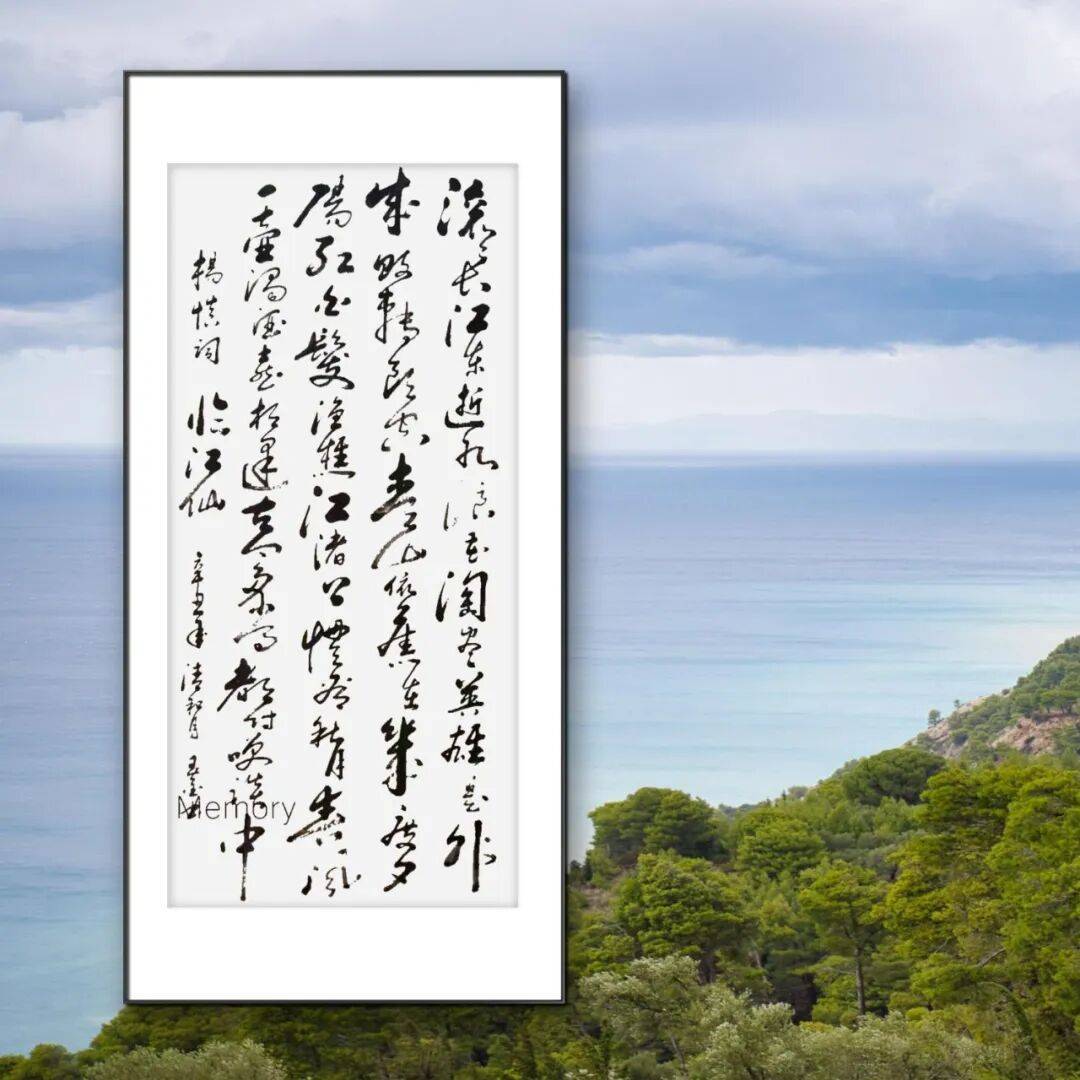 滚滚长江东逝水浪花淘尽英雄是非
成败轉头空青山依舊在幾度夕
陽红白髮渔樵江渚上惯看秋月春风
一壶浊酒喜相逢古今多少事都付笑谈中
楊慎词 临江仙 辛丑年 清和月
Memory